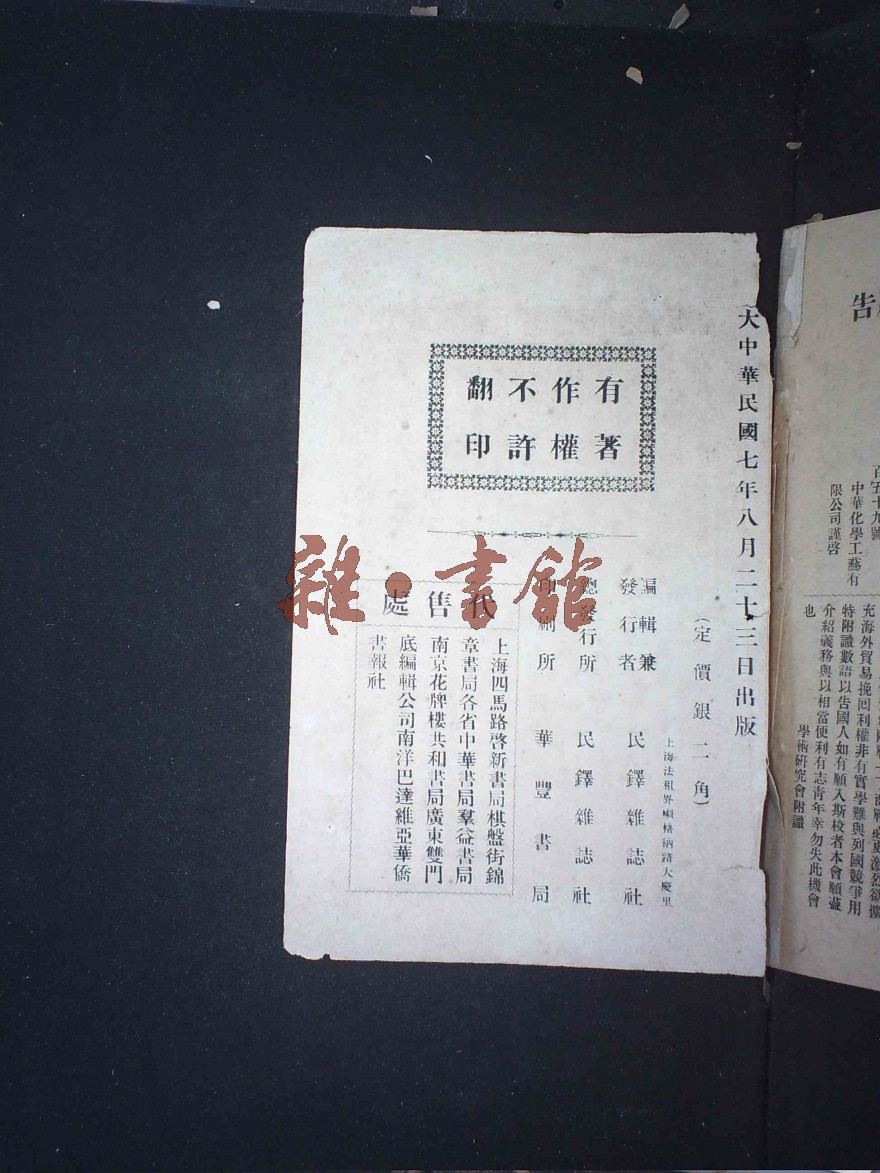 告
百五十九號
中華化學工藝有
限公司謹啓
充海外貿易挽回利權非有實學難與列國競爭用
特附識數語以告國人如有願入斯校者本會願盡
介紹義務與以相當便利有志青年幸勿失此機會
也
學術研究會附識
大中華民國七年八月二十三日出版
(定價銀二角)
有著
作權
不許
翻印
上海法租界嵩格納路大慶里
編輯兼
發行者 民鐸雜誌社
總發行所 民鐸雜誌社
印刷所 華豐書局
代售處
上海四馬路啓新書局棋盤街錦
章書局各省中華書局羣益書局
南京花牌樓共和書局廣東雙門
底編輯公司南洋巴達維亞華僑
書報社
雜·書館